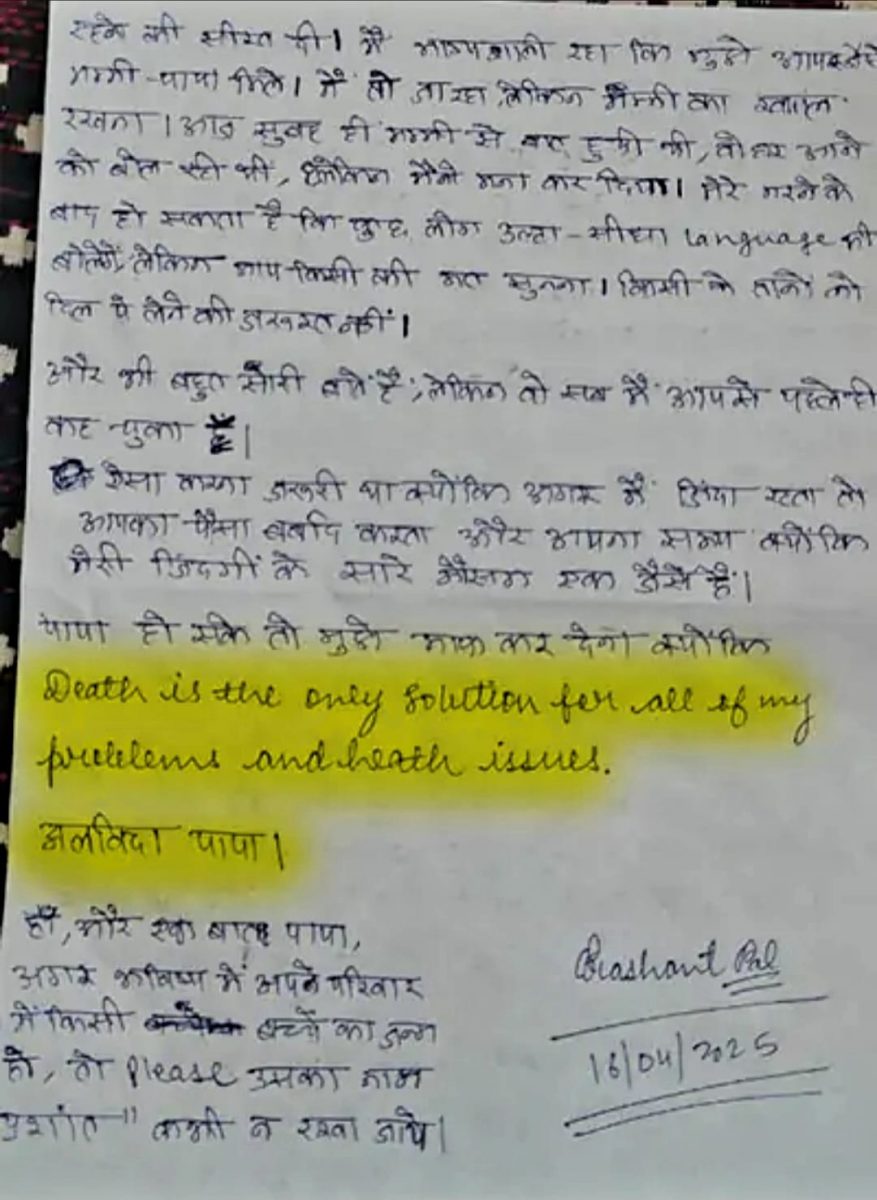 रहने की सीख दी। मैं भाग्यशाली रहा कि मुझे आपके जैसे
मम्मी-पापा मिले। मैं तो जा रहा, लेकिन मम्मी का ख्याल
रखना। आज सुबह ही मम्मी से बात हुयी थी, तो घर आने
को बोल रही थी, लेकिन मैंने मना कर दिया। मेरे मरने के
बाद हो सकता है कि कुछ लोग उल्टा-सीधा Language भी
बोलेंगे, लेकिन आप किसी की मत सुनना। किसी के तानों को
दिल पे लेने की जरूरत नहीं।
और भी बहुत सारी बातें हैं, लेकिन वो सब मैं आपसे पहले ही
कह चुका हूँ।
ऐसा करना जरूरी था क्योंकि अगर मैं जिंदा रहता तो
आपका पैसा बर्बाद करता और अपना समय क्योंकि
मेरी जिंदगी के सारे मौसम एक जैसे हैं।
पापा हो सके तो मुझे माफ कर देना क्योंकि
Death is the only solution for all of my
problems and heath issues.
अलविदा पापा।
हाँ, और एक बात पापा,
अगर भविष्य में अपने परिवार
में किसी बच्चे का जन्म
हो, तो please उसका नाम
प्रशांत" कभी न रखा जाये।
Prashant Pal
16/04/2025